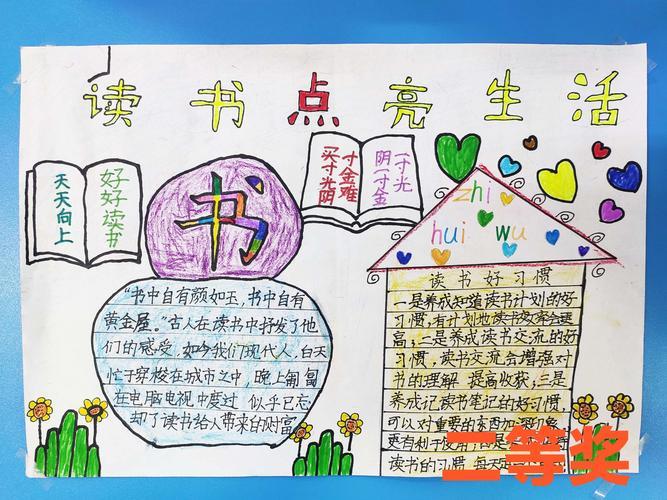 读书点亮生活
好好读书
天天向上
书
一寸光
阴一寸金
寸金难
买寸光阴
zhi
hui wu
"书中自有颜如玉,书中自有
黄金屋。"古人在读书中抒发了他
们的感受,如今我们现代人,白天
忙于穿梭在城市之中,晚上匍匐
在电脑电视中度过 似乎已忘
却了读书给人带来的财富
读书好习惯
一是养成知道读书计划的好
习惯,有计划地读书效率会更
高,二是养成读书交流的好
习惯,读书交流会增强对
书的理解 提高收获,三是
养成记读书笔记的好习惯,
可以对重要的东西加深印象,
更有利于使用,四是
读书的习惯,每天
二等奖